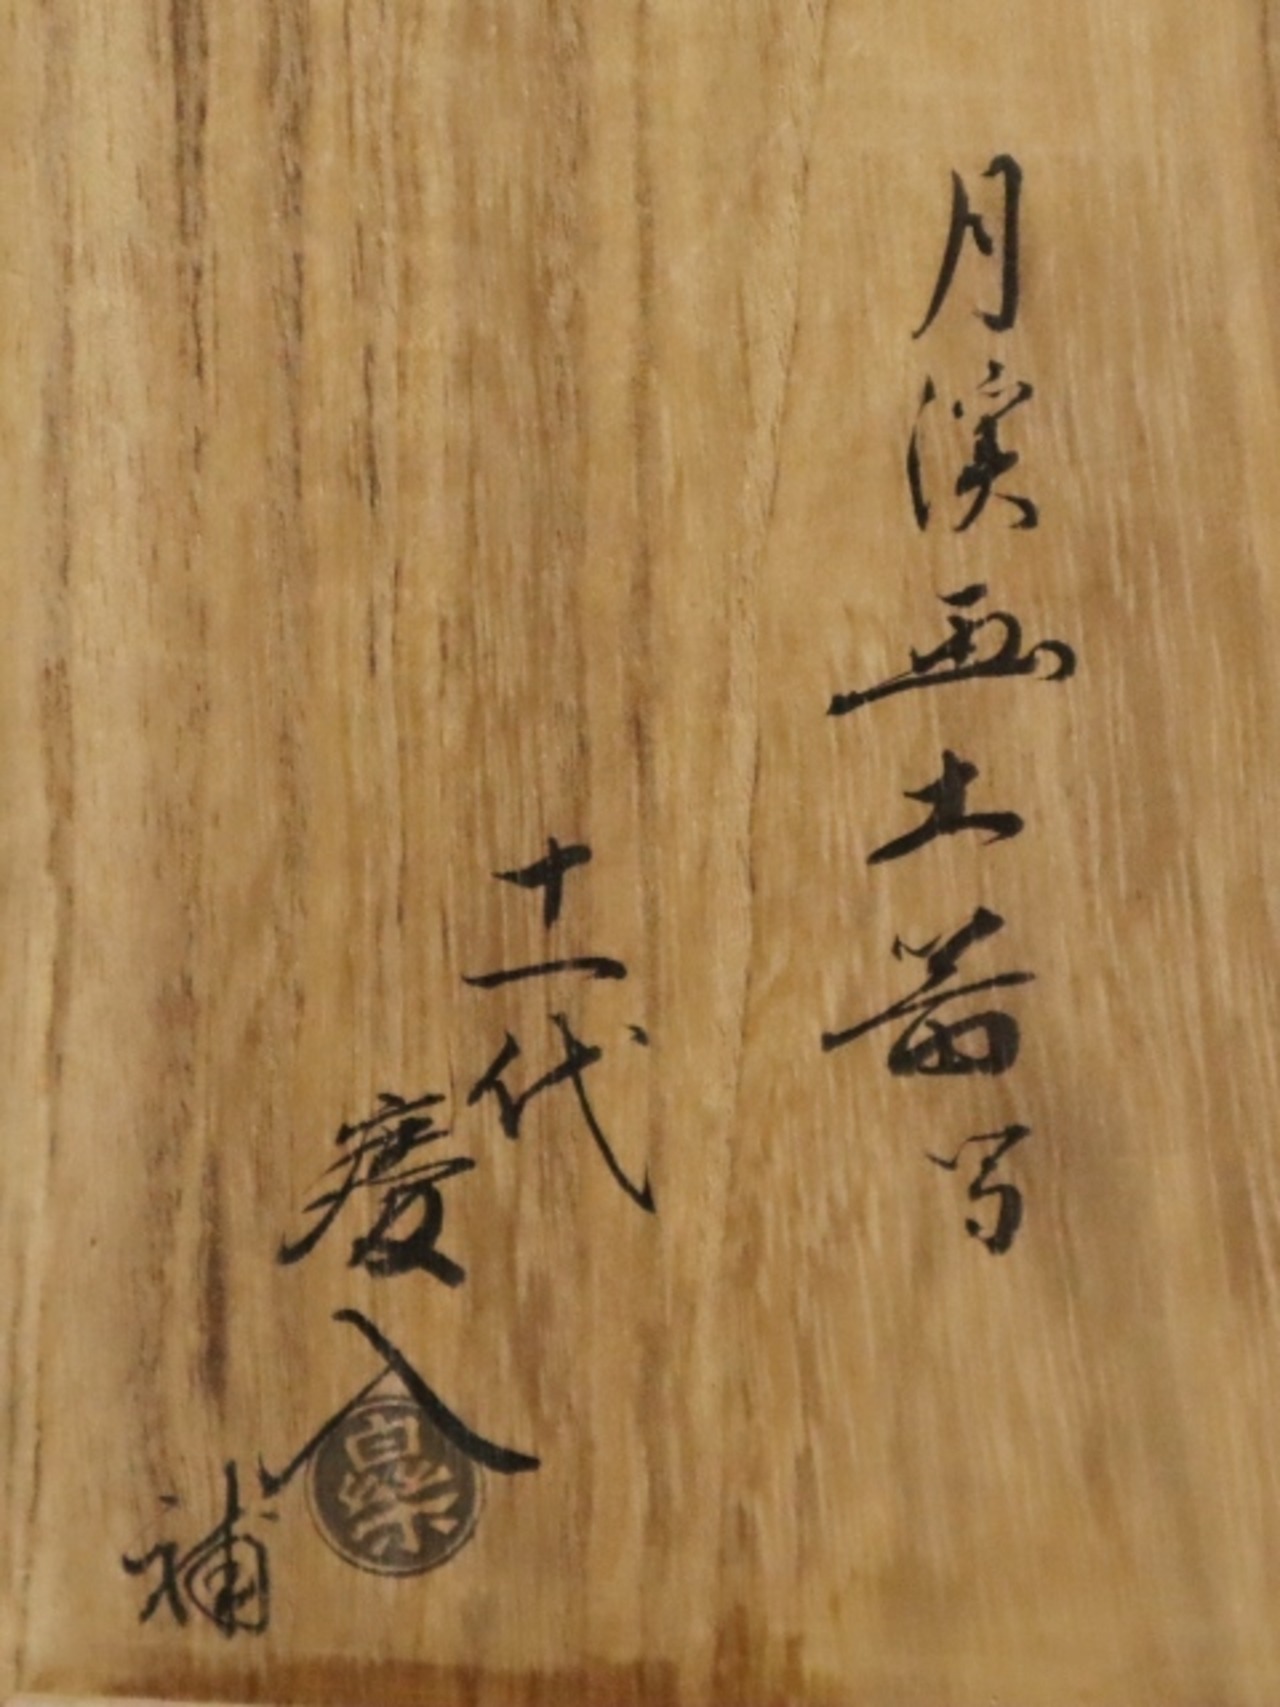 月渓画土器写
十一代
慶入
樂
補